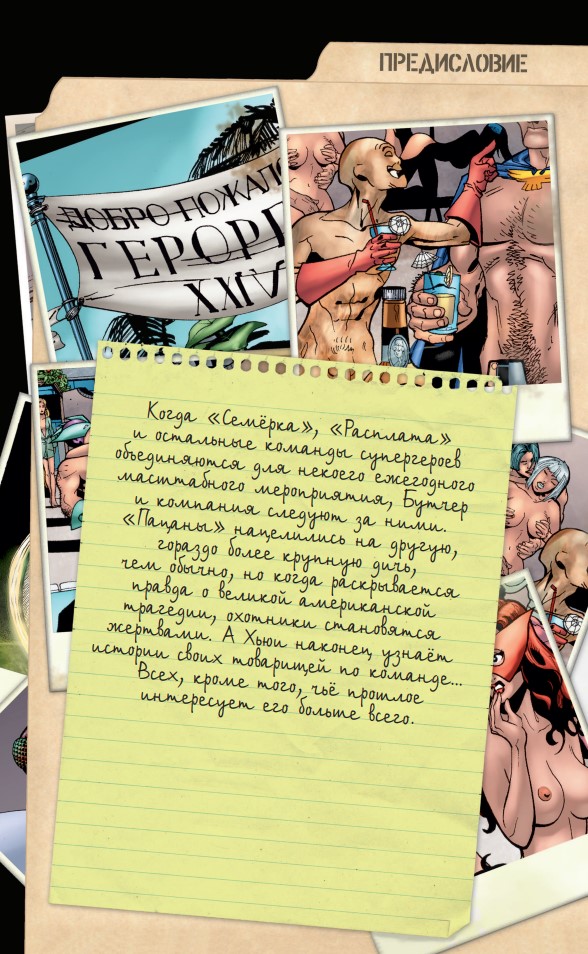 ПРЕДИСЛОВИЕ
ДОБРО ПОЖАЛ
ГЕРОРГ
XXIV
Когда «Семёрка», «Расплата»
и остальные команды супергероев
объединяются для некоего ежегодного
масштабного мероприятия, Бутчер
и компания следуют за ними.
«Пацаны» нацелились на другую,
гораздо более крупную дичь,
чем обычно, но когда раскрывается
правда о великой американской
трагедии, охотники становятся
жертвами. А Хьюи наконец узнаёт
истории своих товарищей по команде...
Всех, кроме того, чьё прошлое
интересует его больше всего.